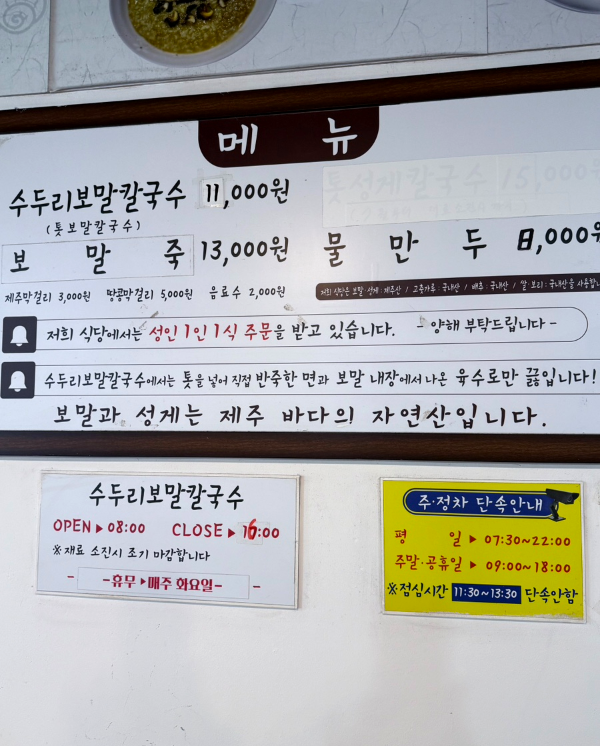 메 뉴
수두리보말칼국수 11,000원
(톳보말칼국수)
톳성게칼국수 15,000원
보 말 죽 13,000원
물 만 두 8,000원
제주막걸리 3,000원 땅콩막걸리 5,000원 음료수 2,000원
저희 식당은 보말·성게 : 제주산 / 고춧가루 : 국내산 / 배추 : 국내산 / 쌀·보리 : 국내산을 사용합니
저희 식당에서는 성인 1인 1식 주문을 받고 있습니다. - 양해 부탁드립니다 -
수두리보말칼국수에서는 톳을 넣어 직접 반죽한 면과 보말 내장에서 나온 육수로만 끓입니다!
보말과 성게는 제주 바다의 자연산입니다.
수두리보말칼국수
OPEN ▶ 08:00 CLOSE ▶ 16:00
※ 재료 소진시 조기 마감합니다
- -휴무 ▶ 매주 화요일- -
주·정차 단속안내
평 일 ▶ 07:30~22:00
주말·공휴일 ▶ 09:00~18:00
※점심시간 11:30~13:30 단속안함